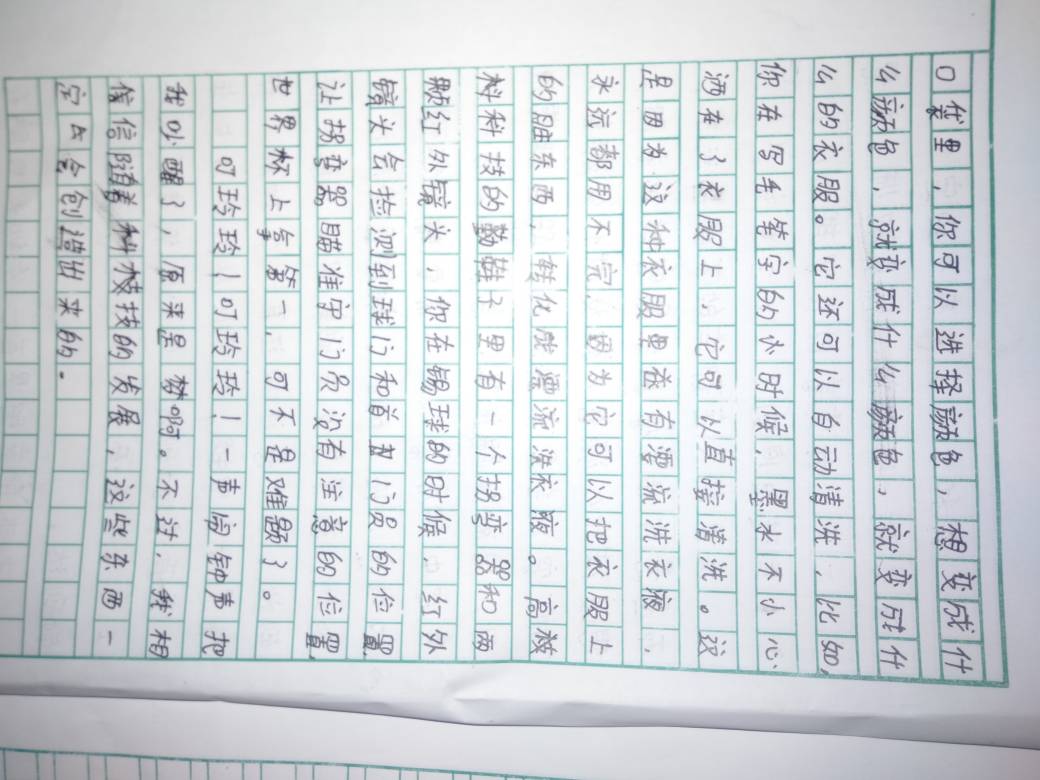 口袋里，你可以选择颜色，想变成什
么颜色，就变成什么颜色，就变成什
么的衣服。它还可以自动清洗，比如，
你在写毛笔字的小时候，墨水不小心
洒在了衣服上，它可以直接清洗。这
是因为这种衣服里有漂流洗衣液，
永远都用不完，因为它可以把衣服上
的脏东西，转化成漂流洗衣液。高被
科科技的鞋子里有一个拐弯器和两
颗红外镜头，你在踢球的时候，红外
镜头会检测到球门和首门员的位置，
让拐弯器瞄准守门员没有注意的位置，
世界杯上争第一，可不是难题了。
叮玲玲！叮玲玲！一声闹钟声把
我吵醒了，原来是梦啊。不过，我相
信随着科技的发展，这些东西一
定会创造出来的。